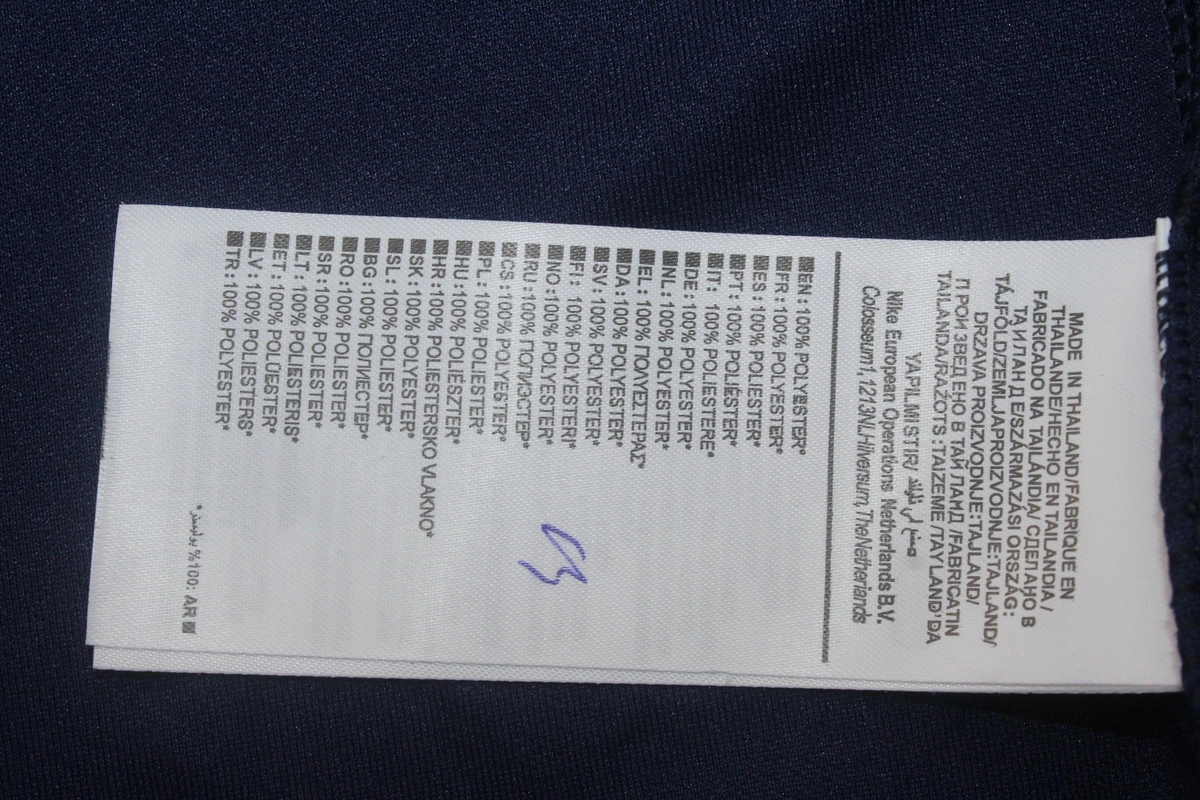 MADE IN THAILAND/FABRIQUE EN
THAILANDE/HECHO EN TAILANDIA /
FABRICADO NA TAILÁNDIA/ СДЕЛАНО В
ТАИЛАНДЕ/SZÁRMAZÁSI ORSZÁG:
TÁJFÖLD/ZEMLJAPROIZVODNJE:TAJLAND/
DRZAVA PROIZVODNJE:TAJLAND/
ПРОИЗВЕДЕНО В ТАЙЛАНД /FABRICATIN
TAILANDA/RAŽOTS :TAIZEME /TAYLAND'DA
YAPILMISTIR/
Nike European Operations Netherlands B.V.
Colosseum1,1213NL Hilversum, The Netherlands
EN : 100% POLYESTER*
FR : 100% POLYESTER*
ES : 100% POLIESTER*
PT : 100% POLIÉSTER*
IT : 100% POLIESTERE*
DE : 100% POLYESTER*
NL : 100% POLYESTER*
EL : 100% ΠΟΛΥΕΣΤΕΡΑΣ*
DA : 100% POLYESTER*
SV : 100% POLYESTER*
FI : 100% POLYESTERI*
NO : 100% POLYESTER*
RU : 100% ПОЛИЭСТЕР*
CS : 100% POLYESTER*
PL : 100% POLIESTER*
HU : 100% POLIÉSZTER*
HR : 100% POLIESTERSKO VLAKNO*
SK : 100% POLYESTER*
SL : 100% POLIESTER*
BG : 100% ПОЛИЕСТЕР*
RO : 100% POLIESTER*
SR : 100% POLIESTER*
LT : 100% POLIESTERIS*
ET : 100% POLÜESTER*
LV : 100% POLIESTERS*
TR : 100% POLYESTER*
AR :100%